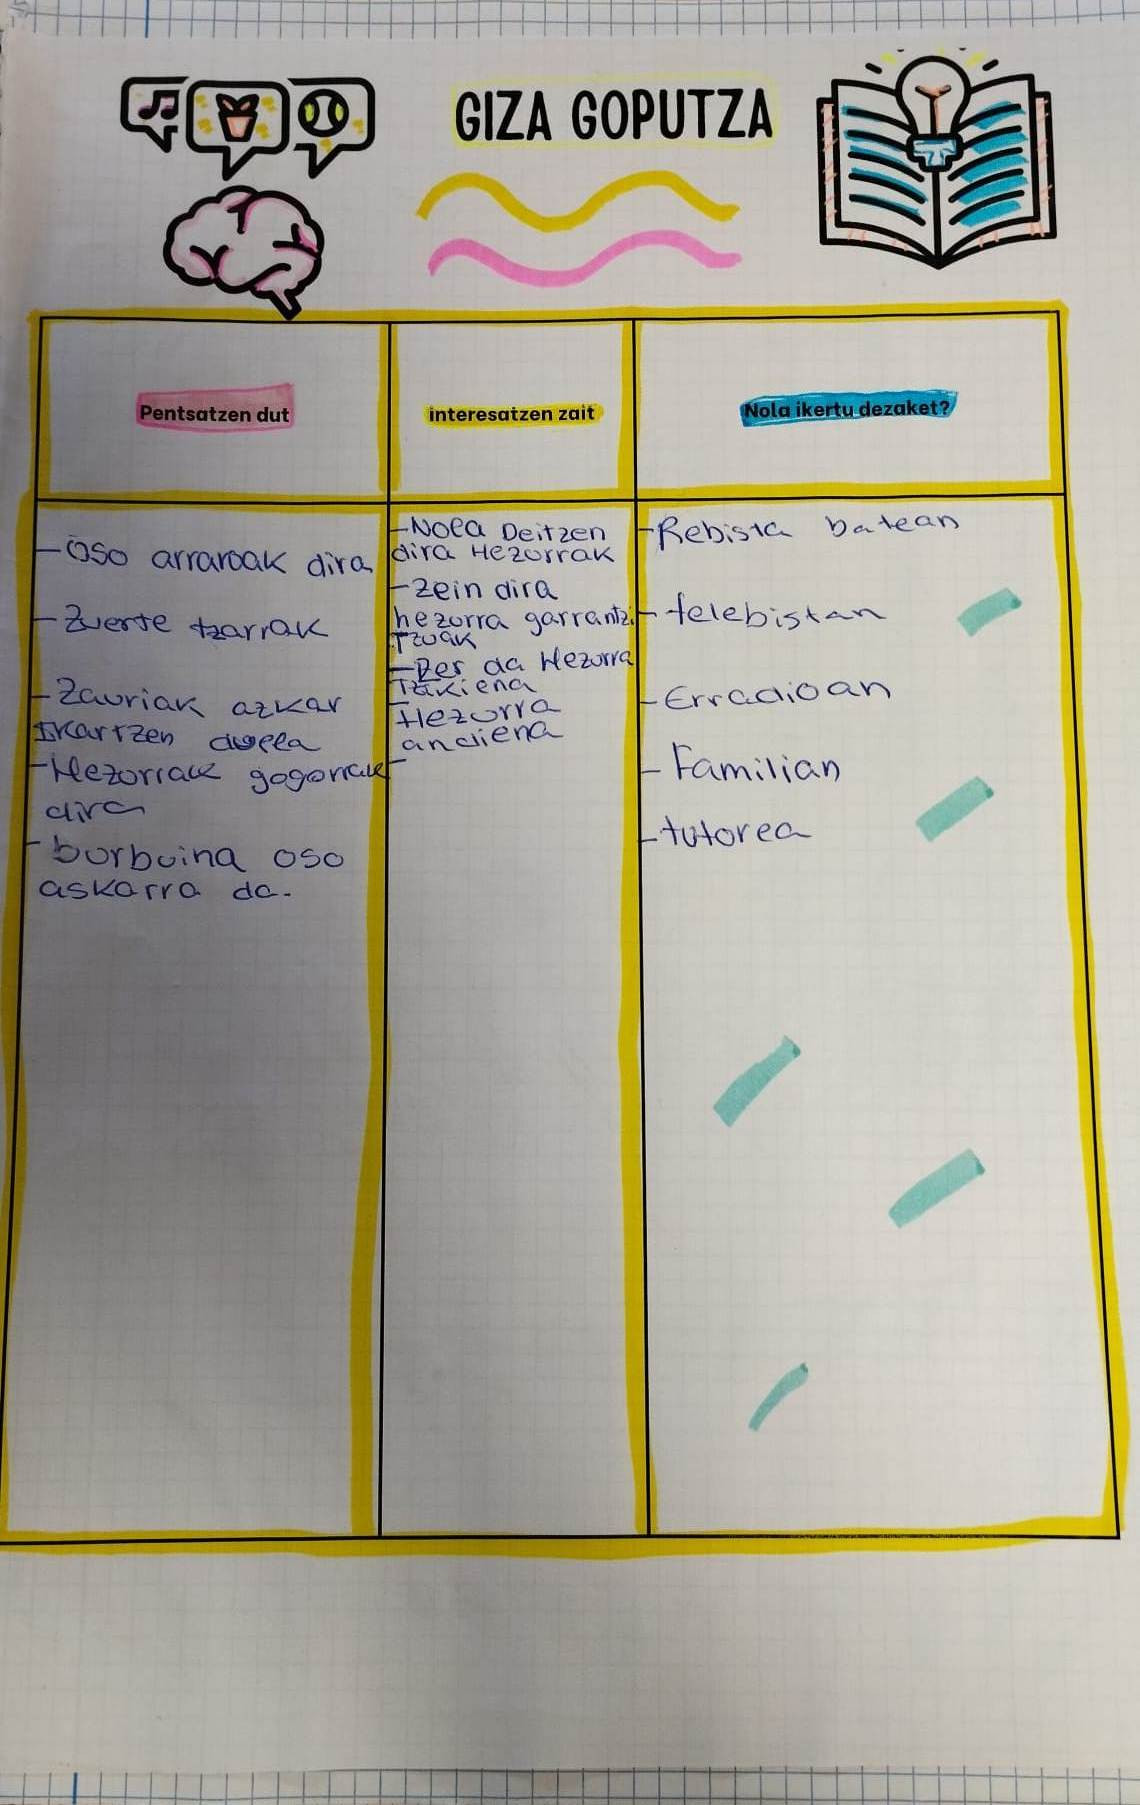 GIZA GOPUTZA
Pentsatzen dut
interesatzen zait
Nola ikertu dezaket?
-Oso arraroak dira
-Zuerte tzarrak
-Zauriak azkar
Ikartzen duela
-Hezorrak gogorrak
dira
-burbuina oso
askarra da.
-Nola Deitzen
dira Hezurrak
-Zein dira
hezurra garrantzi
Tzuak
-Zer da Hezurra
Txikiena
-Hezurra
andiena
-
-Rebista batean
-telebistan
-Erradioan
-Familian
-tutorea